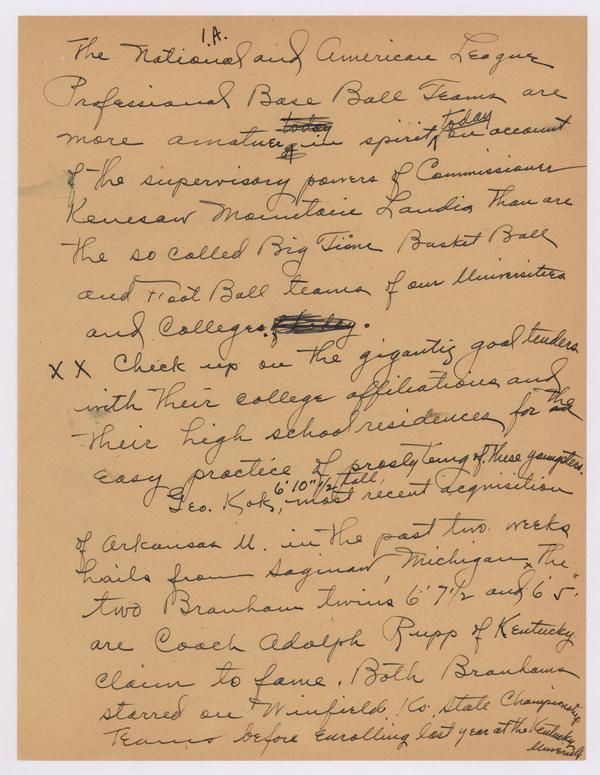 1.A.
The National and American League
Professional Base Ball Teams are
more amatuer in spirit today on account
of the supervisory powers of Commissioner
Kenesaw Mountain Landis than are
the so called Big Time Basket Ball
and Foot Ball teams of our Universities
and Colleges.
X X Check up on the gigantig goal tenders
with their college affiliations and
their high school residences for the
easy practice of proslyteing of these youngsters.
Geo. Kok, 6' 10" 1/2 tall, most recent acquisition
of Arkansas U. in the past two weeks
hails from Saginaw, Michigan x the
two Branham twins 6' 7 1/2 and 6' 5"
are Coach Adolph Rupp of Kentucky
claim to fame. Both Branhams
starred on Winfield, Ks. State Championship
Teams before enrolling last year at the Kentucky
University